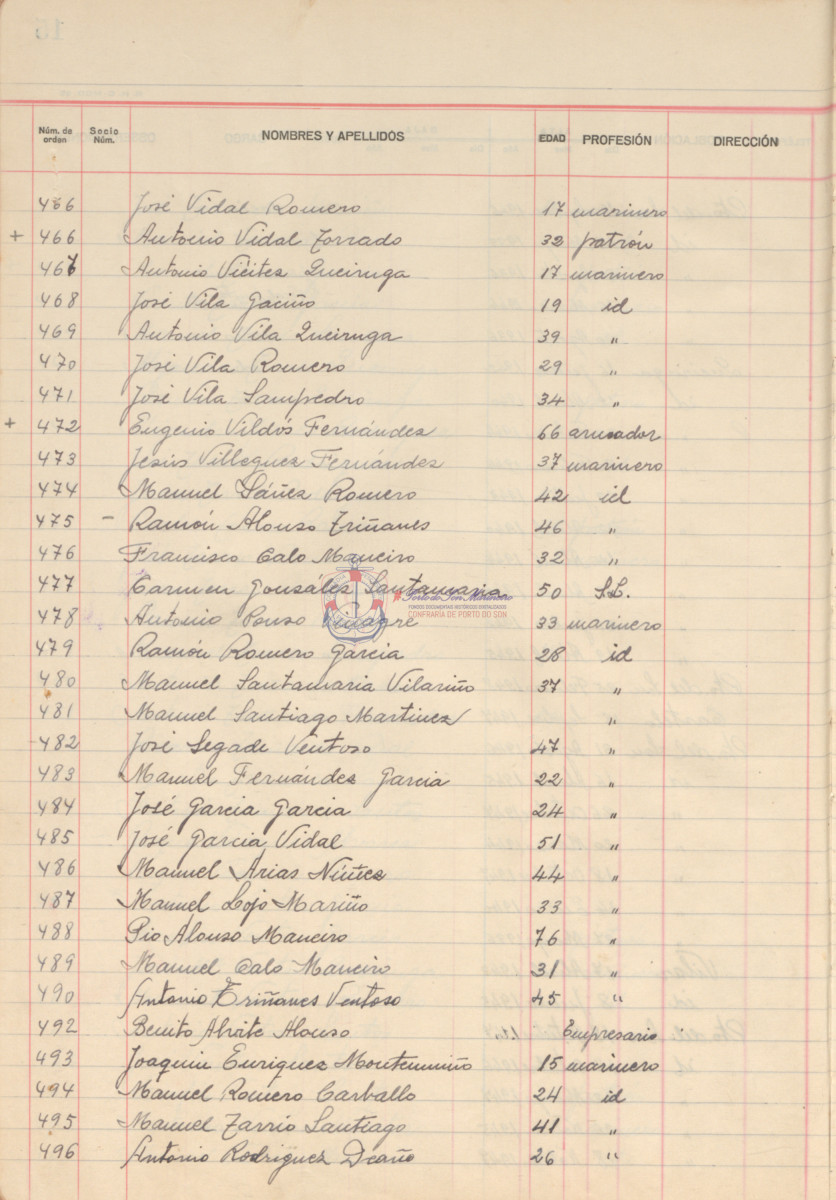 Núm. de orden Socio Núm. NOMBRES Y APELLIDOS EDAD PROFESIÓN DIRECCIÓN
466 José Vidal Romero 17 marinero
+ 466 Antonio Vidal Torrado 32 patrón
467 Antonio Vieites Queiruga 17 marinero
468 José Vila Gaciño 19 id
469 Antonio Vila Queiruga 39 "
470 José Vila Romero 29 "
471 José Vila Sampedro 34 "
+ 472 Eugenio Vildós Fernández 66 armador
473 Jesús Villeguez Fernández 37 marinero
474 Manuel Yáñez Romero 42 id
475 - Ramón Alonso Triñanes 46 "
476 Francisco Calo Maneiro 32 "
477 Carmen González Santamaria 50 S.L.
Porto do Son Mariñeiro
FONDOS DOCUMENTAIS HISTÓRICOS DIXITALIZADOS
CONFRARÍA DE PORTO DO SON
478 Antonio Pouso Vinagre 33 marinero
479 Ramón Romero Garcia 28 id
480 Manuel Santamaria Vilariño 37 "
481 Manuel Santiago Martinez "
482 José Segade Ventoso 47 "
483 Manuel Fernández Garcia 22 "
484 José Garcia Garcia 24 "
485 José Garcia Vidal 51 "
486 Manuel Arias Núñez 44 "
487 Manuel Lojo Mariño 33 "
488 Pio Alonso Maneiro 76 "
489 Manuel Calo Maneiro 31 "
490 Antonio Triñanes Ventoso 45 "
492 Benito Abite Alonso Empresario
493 Joaquin Enriquez Montemuiño 15 marinero
494 Manuel Romero Carballo 24 id
495 Manuel Tarrio Santiago 41 "
496 Antonio Rodriguez Deaño 26 "